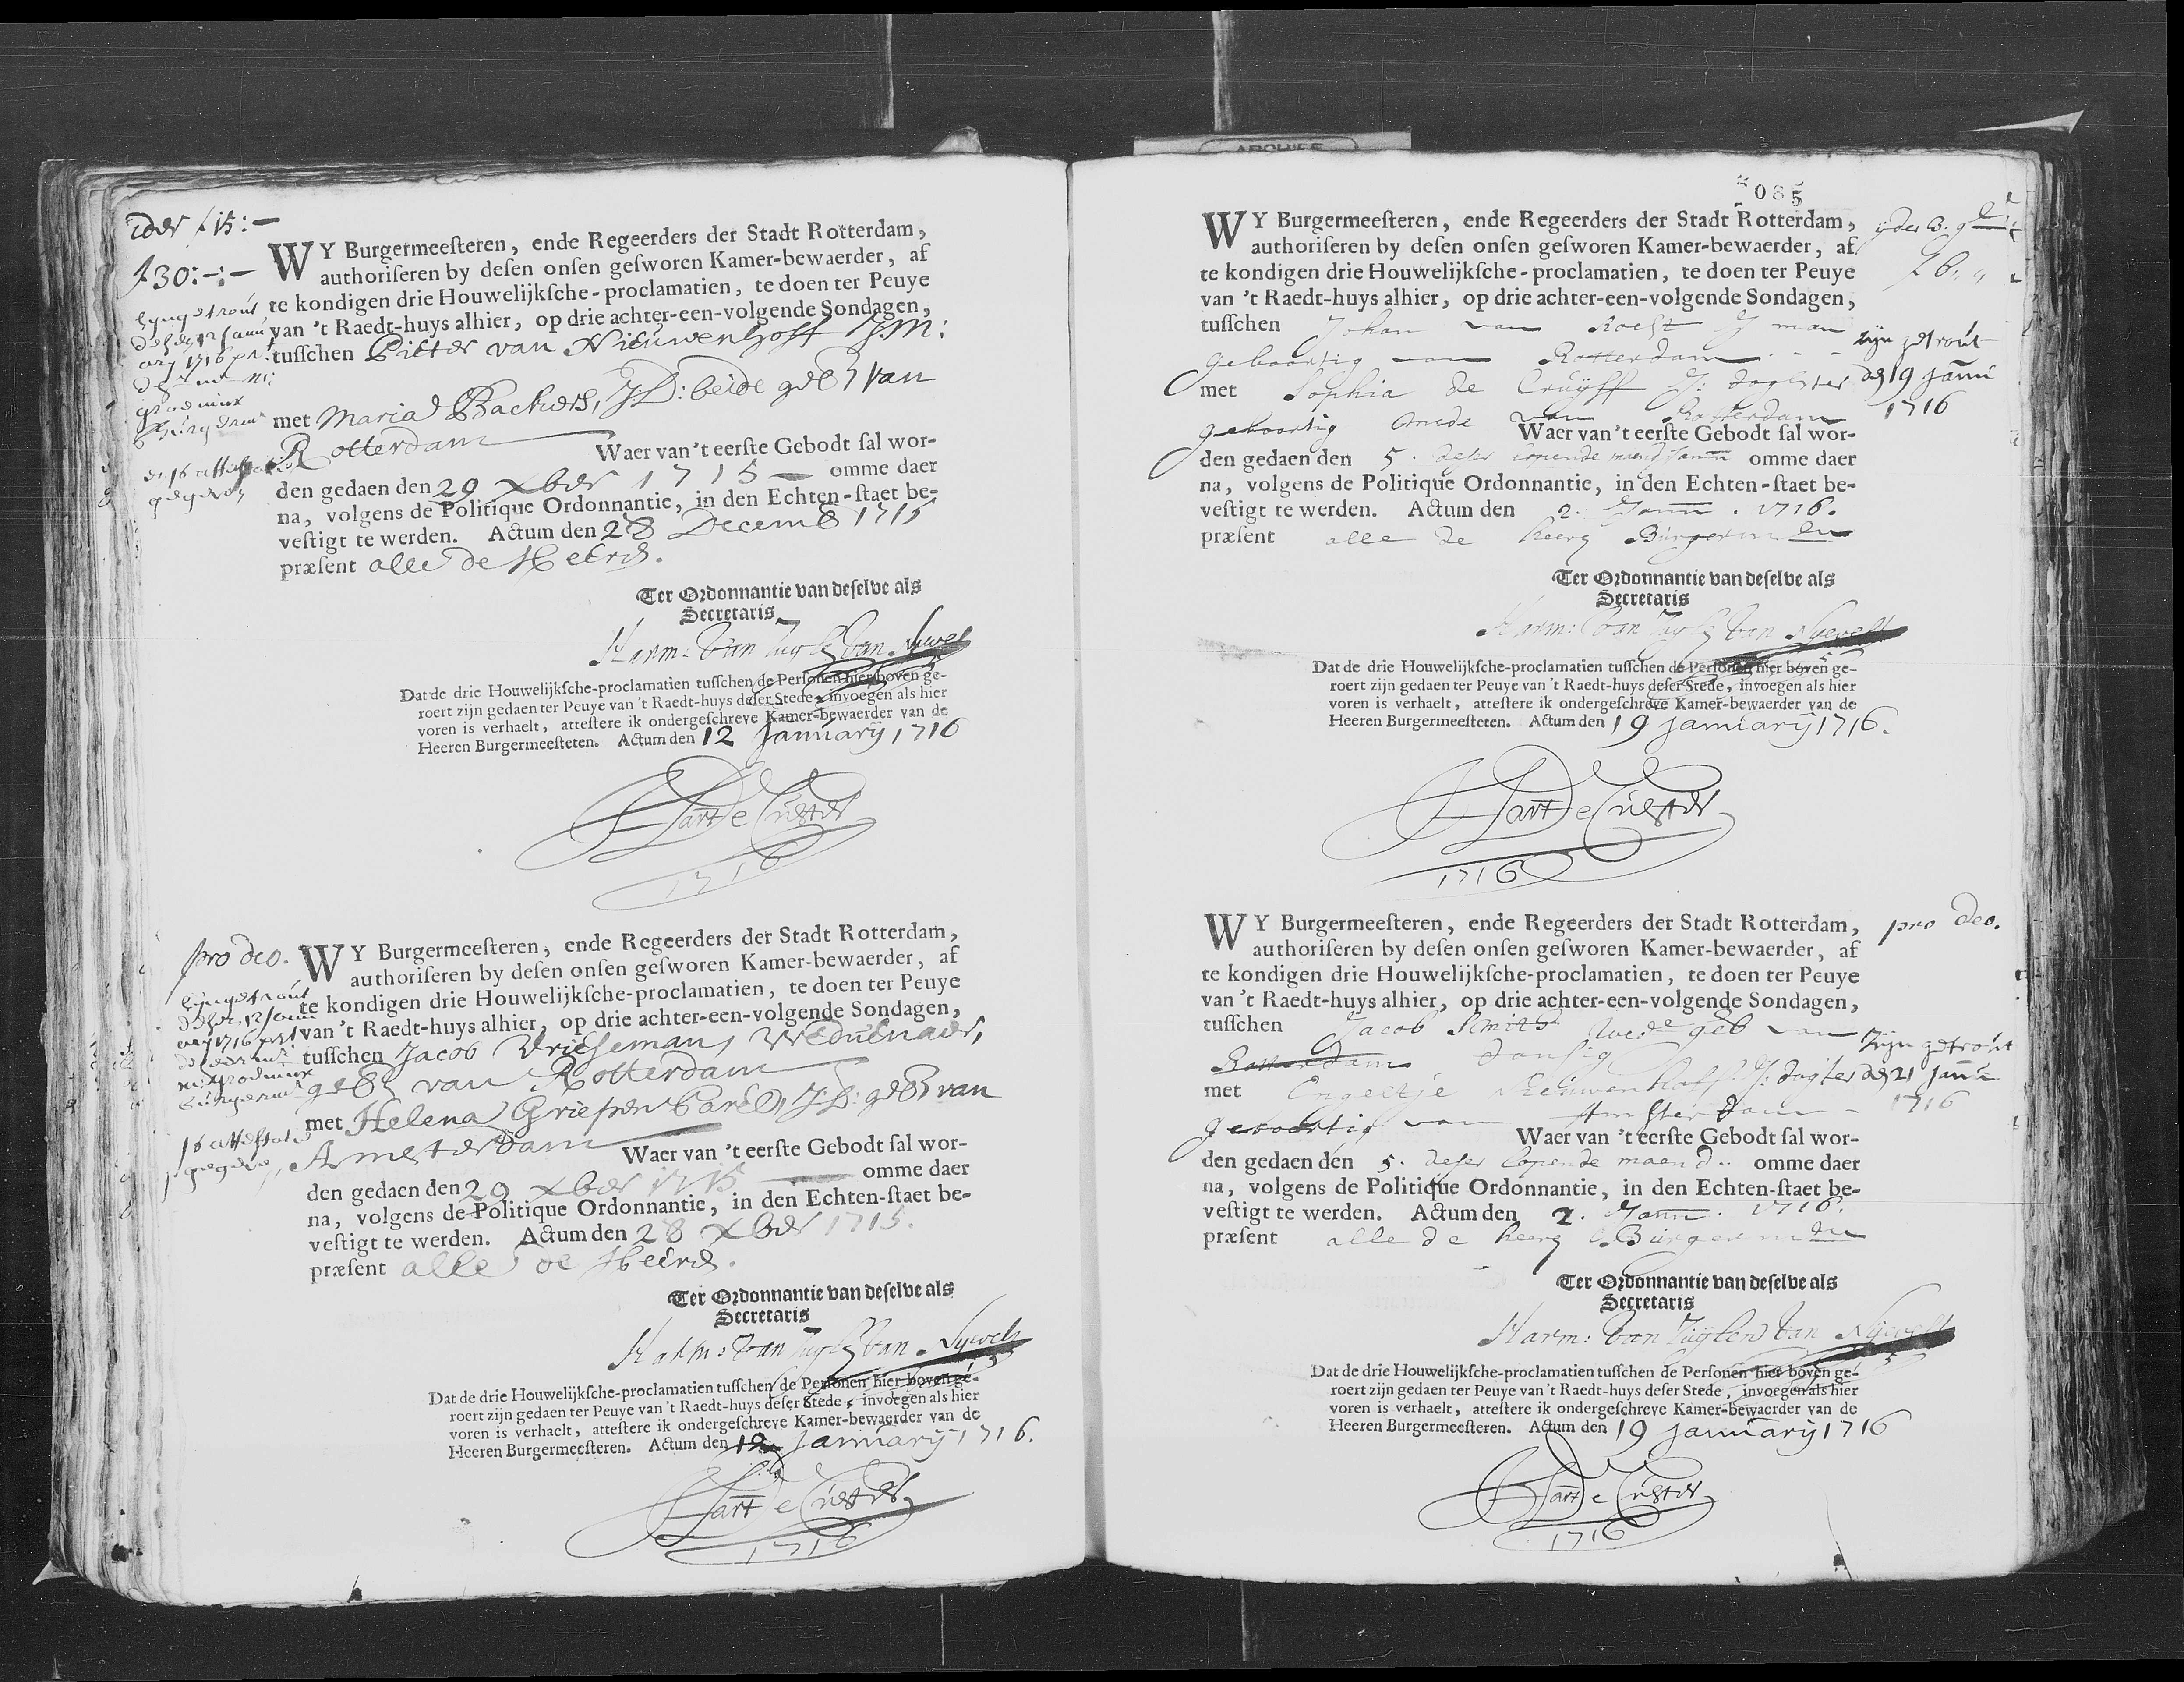 ider f 15:—
f30:-:-
WY Burgermeesteren, ende Regeerders der Stadt Rotterdam,
authoriseren by desen onsen gesworen Kamer-bewaerder, af
te kondigen drie Houwelijksche-proclamatien, te doen ter Peuye
van 't Raedt-huys alhier, op drie achter-een-volgende Sondagen,
tusschen Pieter van Nieuwenhoff J:M:
met Maria Backers, J:D: beide geb van
Rotterdam Waer van 't eerste Gebodt sal wor-
den gedaen den 29 xber 1715 — omme daer
na, volgens de Politique Ordonnantie, in den Echten-staet be-
vestigt te werden. Actum den 28 Decemb 1715
præsent alle de Heere.
Ter Ordonnantie van deselve als
Secretaris
Harm: van Zuyl van Nyvelt
Dat de drie Houwelijksche-proclamatien tusschen de Personen hier boven ge-
roert zijn gedaen ter Peuye van 't Raedt-huys deser Stede, invoegen als hier
voren is verhaelt, attestere ik ondergeschreve Kamer-bewaerder van de
Heeren Burgermeesteten. Actum den 12 January 1716
1716
pro deo.
WY Burgermeesteren, ende Regeerders der Stadt Rotterdam,
authoriseren by desen onsen gesworen Kamer-bewaerder, af
te kondigen drie Houwelijksche-proclamatien, te doen ter Peuye
van 't Raedt-huys alhier, op drie achter-een-volgende Sondagen,
tusschen Jacob Drieseman, Weduenaer,
geb van Rotterdam
met Helena J:D: geb van
Amsterdam Waer van 't eerste Gebodt sal wor-
den gedaen den 29 xber 1715 — omme daer
na, volgens de Politique Ordonnantie, in den Echten-staet be-
vestigt te werden. Actum den 28 xber 1715.
præsent alle de Heere.
Ter Ordonnantie van deselve als
Secretaris
Harm: van Zuyl van Nyvelt
Dat de drie Houwelijksche-proclamatien tusschen de Personen hier boven ge-
roert zijn gedaen ter Peuye van 't Raedt-huys deser Stede, invoegen als hier
voren is verhaelt, attestere ik ondergeschreve Kamer-bewaerder van de
Heeren Burgermeesteren. Actum den 12 January 1716.
1716
085
WY Burgermeesteren, ende Regeerders der Stadt Rotterdam,
authoriseren by desen onsen gesworen Kamer-bewaerder, af
te kondigen drie Houwelijksche-proclamatien, te doen ter Peuye
van 't Raedt-huys alhier, op drie achter-een-volgende Sondagen,
tusschen Johan van J: man
geboortig van Rotterdam
met Sophia de Cruyff J: doghter
geboortig mede van Rotterdam
Waer van 't eerste Gebodt sal wor-
den gedaen den 5. deser lopende maend Janu omme daer
na, volgens de Politique Ordonnantie, in den Echten-staet be-
vestigt te werden. Actum den 2. Janu. 1716.
præsent alle de heere Burgerm en
zijn getrout
den 19 Janu
1716
Ter Ordonnantie van deselve als
Secretaris
Harm: van Zuyl van Nyevelt
Dat de drie Houwelijksche-proclamatien tusschen de Personen hier boven ge-
roert zijn gedaen ter Peuye van 't Raedt-huys deser Stede, invoegen als hier
voren is verhaelt, attestere ik ondergeschreve Kamer-bewaerder van de
Heeren Burgermeesteten. Actum den 19 January 1716.
1716
pro deo.
WY Burgermeesteren, ende Regeerders der Stadt Rotterdam,
authoriseren by desen onsen gesworen Kamer-bewaerder, af
te kondigen drie Houwelijksche-proclamatien, te doen ter Peuye
van 't Raedt-huys alhier, op drie achter-een-volgende Sondagen,
tusschen Jacob Smith geb van
Rotterdam Dansig
met Engeltje Nieuwenhoff J: dogter
geboortig van Amsterdam
Waer van 't eerste Gebodt sal wor-
den gedaen den 5. deser lopende maend. omme daer
na, volgens de Politique Ordonnantie, in den Echten-staet be-
vestigt te werden. Actum den 2. Janu. 1716.
præsent alle de heere Burgerm en
Zijn getrout
den 21 Janu
1716
Ter Ordonnantie van deselve als
Secretaris
Harm: van Zuylen van Nijevelt
Dat de drie Houwelijksche-proclamatien tusschen de Personen hier boven ge-
roert zijn gedaen ter Peuye van 't Raedt-huys deser Stede, invoegen als hier
voren is verhaelt, attestere ik ondergeschreve Kamer-bewaerder van de
Heeren Burgermeesteren. Actum den 19 January 1716
1716